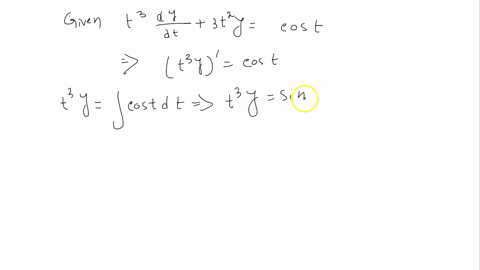 Given t³ dy/dt + 3t²y = cos t
⇒ (t³y)' = cos t
t³y = ∫cos t dt ⇒ t³y = sin